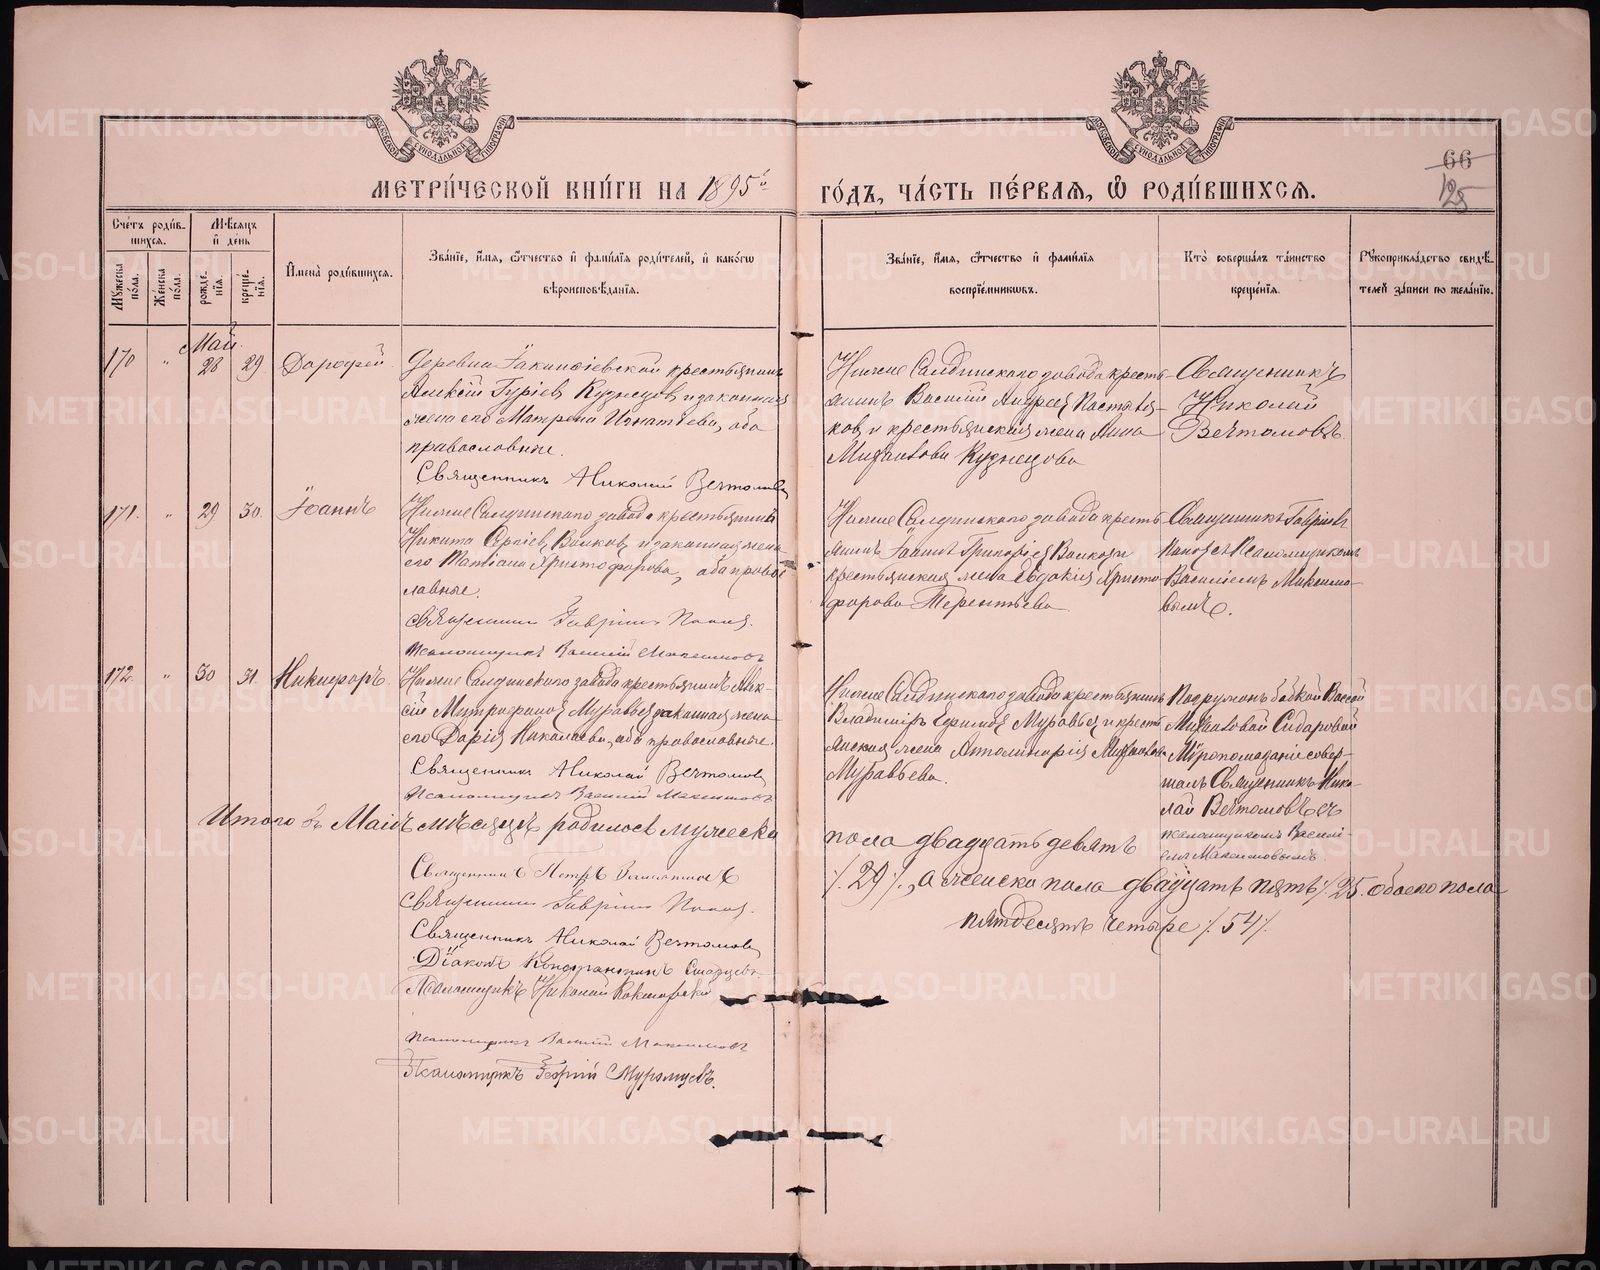 МЕТРИ́ЧЕСКОЙ КНИ́ГИ НА 1895й
ГО́ДЪ, ЧА́СТЬ ПЕ́РВАѦ, Ѡ РОДИ́ВШИХСѦ.
66
125
Сче́тъ роди́в-
шихсѧ.
Мѣ́сѧцъ
и де́нь
Му́жеска по́ла.
Же́нска по́ла.
рожде́-
нїѧ.
креще́-
нїѧ.
Имена̀ роди́вшихсѧ.
Зва́нїе, и́мѧ, ѻ́тчество и фами́лїѧ роди́телей, и како́гѡ
вѣроисповѣ́данїѧ.
Зва́нїе, и́мѧ, ѻ́тчество и фами́лїѧ
воспрїе́мникѡвъ.
Кто̀ соверша́лъ та́инство
креще́нїѧ.
Рꙋкоприкла́дство свидѣ́-
телей за́писи по жела́нїю.
Май
170 " 28 29 Дорофей
Деревни Іакинфіевской крестьянинъ
Алексій Гуріев Кузнецов и законная
жена его Матрена Игнатіева, оба
православные.
Священникъ Николай Вечтомов
Нижне Салдинскаго завода кресть-
янинъ Василій Андреев Постни-
ков и крестьянская жена Анна
Михаилова Кузнецова
Священникъ
Николай
Вечтомовъ.
171. " 29 30. Іоаннъ
Нижне Салдинскаго завода крестьянинъ
Никита Сергіев Волков и законная жена
его Татіана Христофорова, оба право-
славные.
Священникъ Гавріилъ Попов.
Псаломщикъ Василій Максимовъ
Нижне Салдинскаго завода кресть-
янинъ Іоаннъ Григоріев Волков и
крестьянская жена Евдокія Христо-
форова Терентьева
Священникъ Гавріилъ
Попов съ Псаломщикомъ
Василіемъ Максимо-
вымъ.
172. " 30 31. Никифоръ.
Нижне Салдинскаго завода крестьянинъ Алек-
сій Митрофанов Муравьев и законная жена
его Дарія Николаева, оба православные.
Священникъ Николай Вечтомов
Псаломщикъ Василій Максимовъ
Нижне Салдинскаго завода крестьянинъ
Владиміръ Ефимов Муравьев и кресть-
янская жена Апполинарія Михаилова
Муравьева.
Погружонъ бабкой Вассой
Михаиловой Сидоровой
Мѵропомазаніе совер-
шалъ Священникъ Нико-
лай Вечтомовъ съ
псаломщикомъ Василі-
емъ Максимовымъ.
Итого въ Маѣ мѣсяцѣ родилось мужеска
пола двадцать девять
/. 29 /., а женска пола двадцать пять /. 25. обоего пола
пятдесятъ четыре /. 54 /.
Священникъ Петръ
Священникъ Гавріилъ Попов.
Священникъ Николай Вечтомов
Діаконъ Константинъ Старцевъ
Псаломщикъ Николай
Псаломщикъ Василій Максимовъ
Псаломщикъ Георгій Муромцевъ.